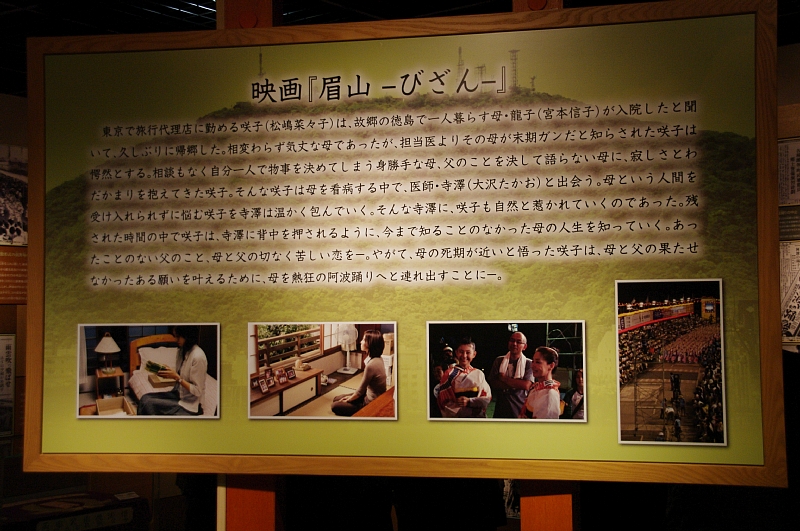 映画『眉山 −びざん−』
東京で旅行代理店に勤める咲子(松嶋菜々子)は、故郷の徳島で一人暮らす母・龍子(宮本信子)が入院したと聞
いて、久しぶりに帰郷した。相変わらず気丈な母であったが、担当医よりその母が末期ガンだと知らされた咲子は
愕然とする。相談もなく自分一人で物事を決めてしまう身勝手な母、父のことを決して語らない母に、寂しさとわ
だかまりを抱えてきた咲子。そんな咲子は母を看病する中で、医師・寺澤(大沢たかお)と出会う。母という人間を
受け入れられずに悩む咲子を寺澤は温かく包んでいく。そんな寺澤に、咲子も自然と惹かれていくのであった。残
された時間の中で咲子は、寺澤に背中を押されるように、今まで知ることのなかった母の人生を知っていく。あっ
たことのない父のこと、母と父の切なく苦しい恋を−。やがて、母の死期が近いと悟った咲子は、母と父の果たせ
なかったある願いを叶えるために、母を熱狂の阿波踊りへと連れ出すことに−。